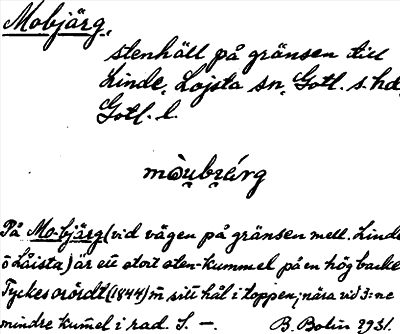 Mobjärg,
stenhäll på gränsen till
Linde, Lojsta sn, Gotl. s. hd,
Gotl. l.
På Mo-bjärg (vid vägen på gränsen mell. Linde
o Låista) är ett stort sten-kummel på en hög backe.
Tyckes orördt (1844) m sitt hål i toppen; nära vid 3:ne
mindre kumel i rad. S. —. B. Bolin 1931.